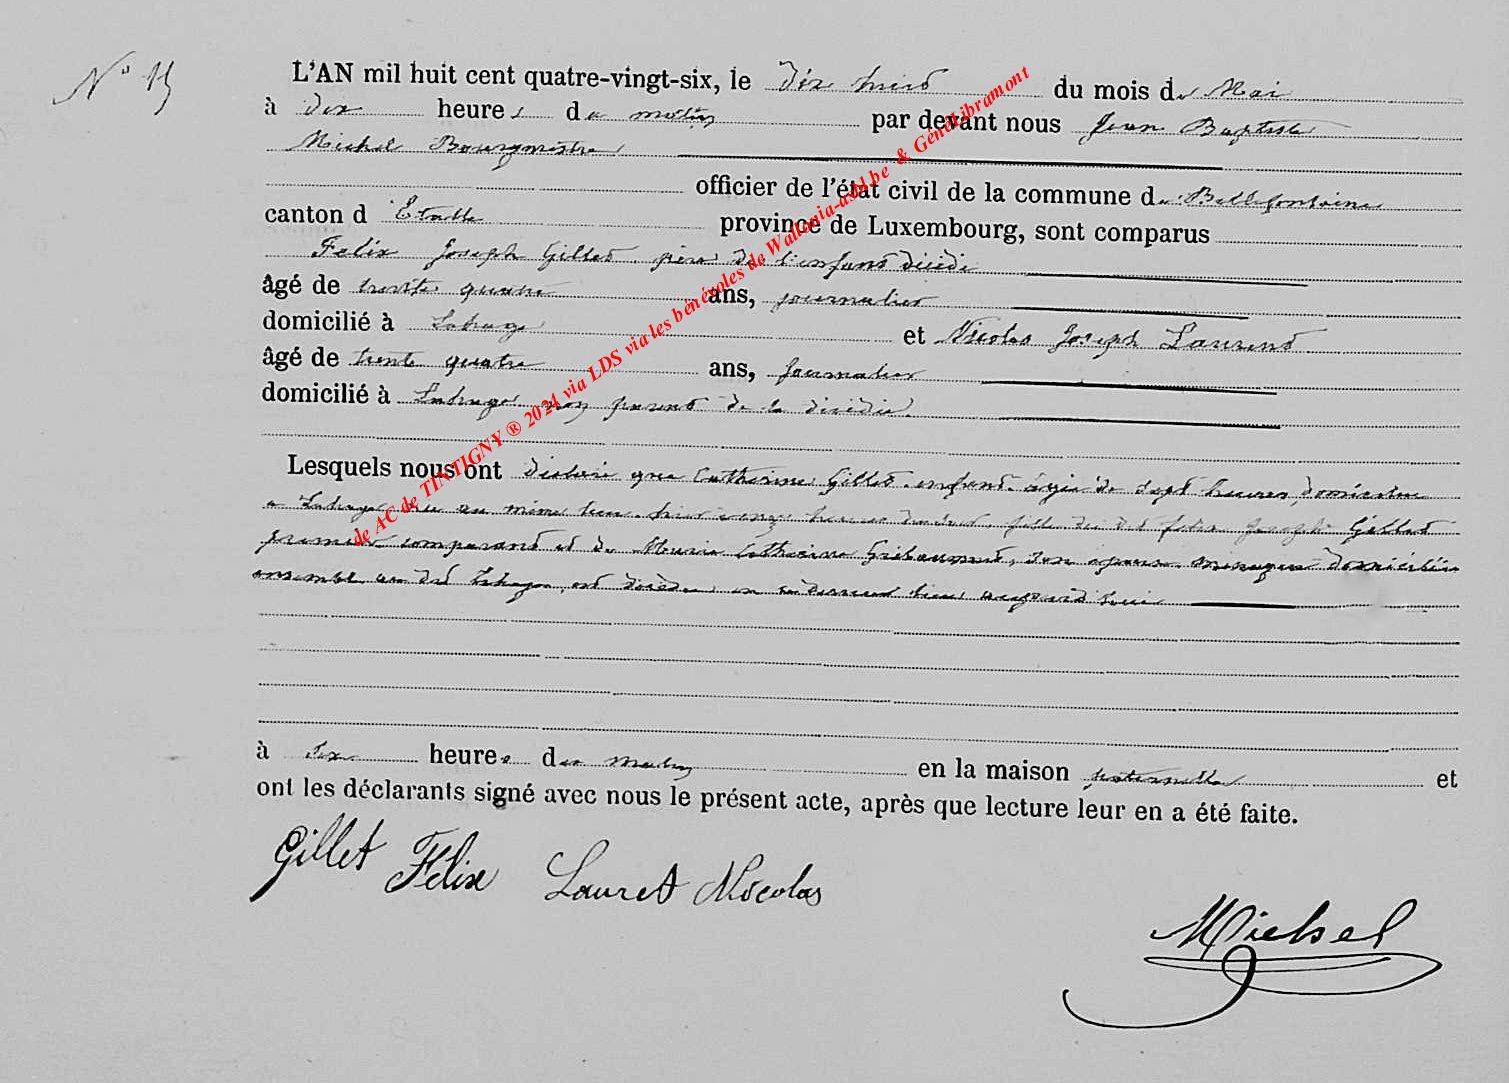 N° 15
L'AN mil huit cent quatre-vingt-six, le dix huit du mois de Mai
à dix heures du matin par devant nous Jean Baptiste
Michel Bourgmestre
officier de l'état civil de la commune de Bellefontaine
canton d'Etalle province de Luxembourg, sont comparus
Felix Joseph Gillet père de l'enfant décédé
âgé de trente quatre ans, journalier
domicilié à Lahage et Nicolas Joseph Laurent
âgé de trente quatre ans, journalier
domicilié à Lahage non parent de la décédée
Lesquels nous ont déclaré que Catherine Gillet enfant âgée de sept heures, domiciliée
à Lahage née au même lieu hier à onze heures du soir, fille de dit felix Joseph Gillet
premier comparant et de Marie Catherine son épouse ménagère domiciliés
ensemble au dit Lahage, est décédée en ce dernier lieu aujourd'hui
à six heures du matin en la maison paternelle et
ont les déclarants signé avec nous le présent acte, après que lecture leur en a été faite.
Gillet Félix Lauret Nicolas
Michel
de AC de TINTIGNY ® 2024 via LDS via les bénévoles de Wallonia-asbl.be & GénéaLibramont